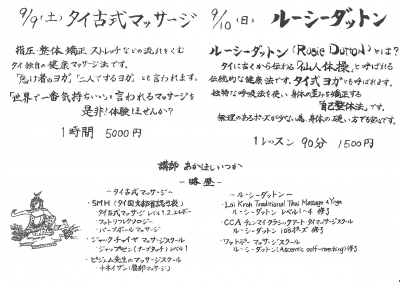 9/9(土) タイ古式マッサージ
指圧、整体、矯正、ストレッチなどの流れをくむ
タイ独自の健康マッサージ法です。
「怠け者のヨガ」「二人でするヨガ」とも言われます。
「世界で一番気持ちいい」と言われるマッサージを
是非!体験はせんか?
1時間 5000円
9/10(日) ルーシーダットン
ルーシーダットン(Rusie Dutton)とは?
タイに古くから伝わる「仙人体操」と呼ばれる
伝統的な健康法です。タイ式ヨガとも呼ばれます。
独特な呼吸法を使い、身体の歪みを矯正する
「自己整体法」です。
無理のあるポーズが少ない為、身体の硬い方でも安心です。
1レッスン 90分 1500円
講師 あかほしいつか
~略歴~
~タイ古式マッサージ~
・SMH(タイ国支部省認可校)
タイ古式マッサージ レベル1.2.エルボー
フットリフレクソロジー
ハーブボールマッサージ
・ジャックチャイヤ マッサージスクール
ジャップセン(ナーブタッチ)レベル1
・ピシェム先生のマッサージスクール
トークセン
~ルーシーダットン~
・Loi Kroh Traditional Thai Massage & Yoga
ルーシーダットン レベル1~4 修了
・CCA チェンマイクラシックアート タイマッサージスクール
ルーシーダットン 108ポーズ 修了
・ワットポー マッサージスクール
ルーシーダットン(Ascentic self-stretching)修了